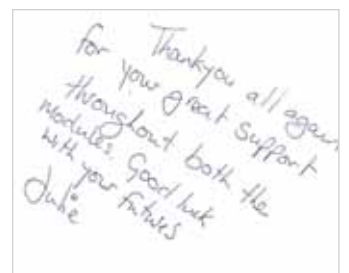 Thankyou all again
for your great support
throughout both the
modules. Good luck
with your futures
Julie